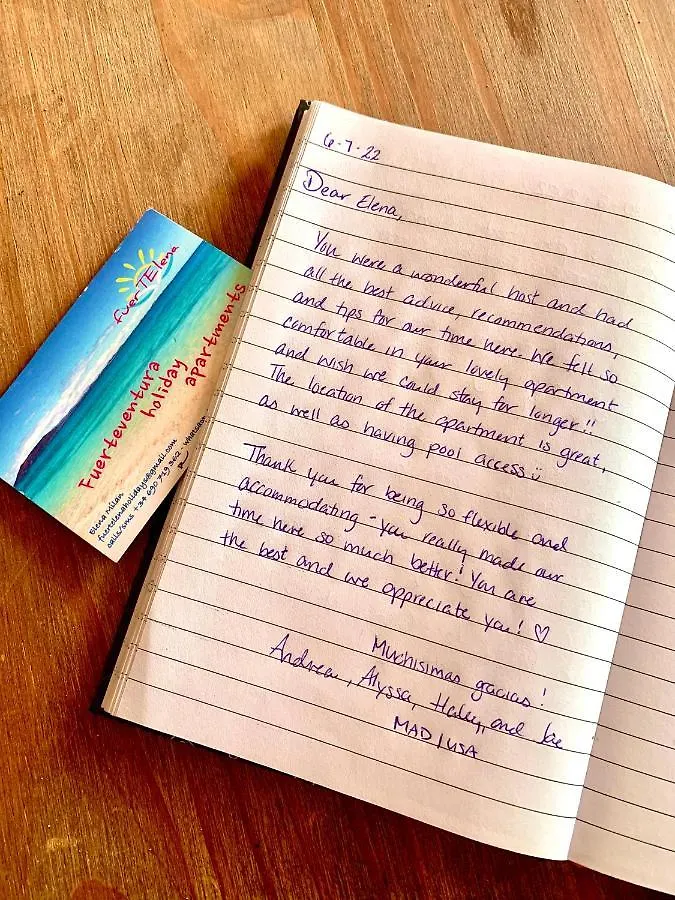 6.7.22
Dear Elena,
You were a wonderful host and had
all the best advice, recommendations,
and tips for our time here. We felt so
comfortable in your lovely apartment
and wish we could stay for longer!!
The location of the apartment is great,
as well as having pool access :)
Thank you for being so flexible and
accommodating - you really made our
time here so much better! You are
the best and we appreciate you! ♡
Muchisimas gracias!
Andrea, Alyssa, Haley, and
MAD / USA
fuerTElena
Fuerteventura
holiday
apartments
Elena Milan
fuertelenaholidays@gmail.com
calls/sms +34 690 719 362 - whatsapp